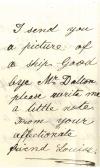 I send you
a picture of
a ship Good
bye Mr Dalton
please write me
a little note
From your
affectionate
friend Louise